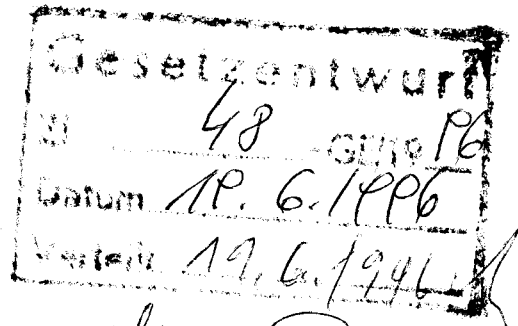 Gesetzentwurf
Zl. 48 -GE/19 96
Datum 19. 6. 1996
Verteilt 19. 6. 1996